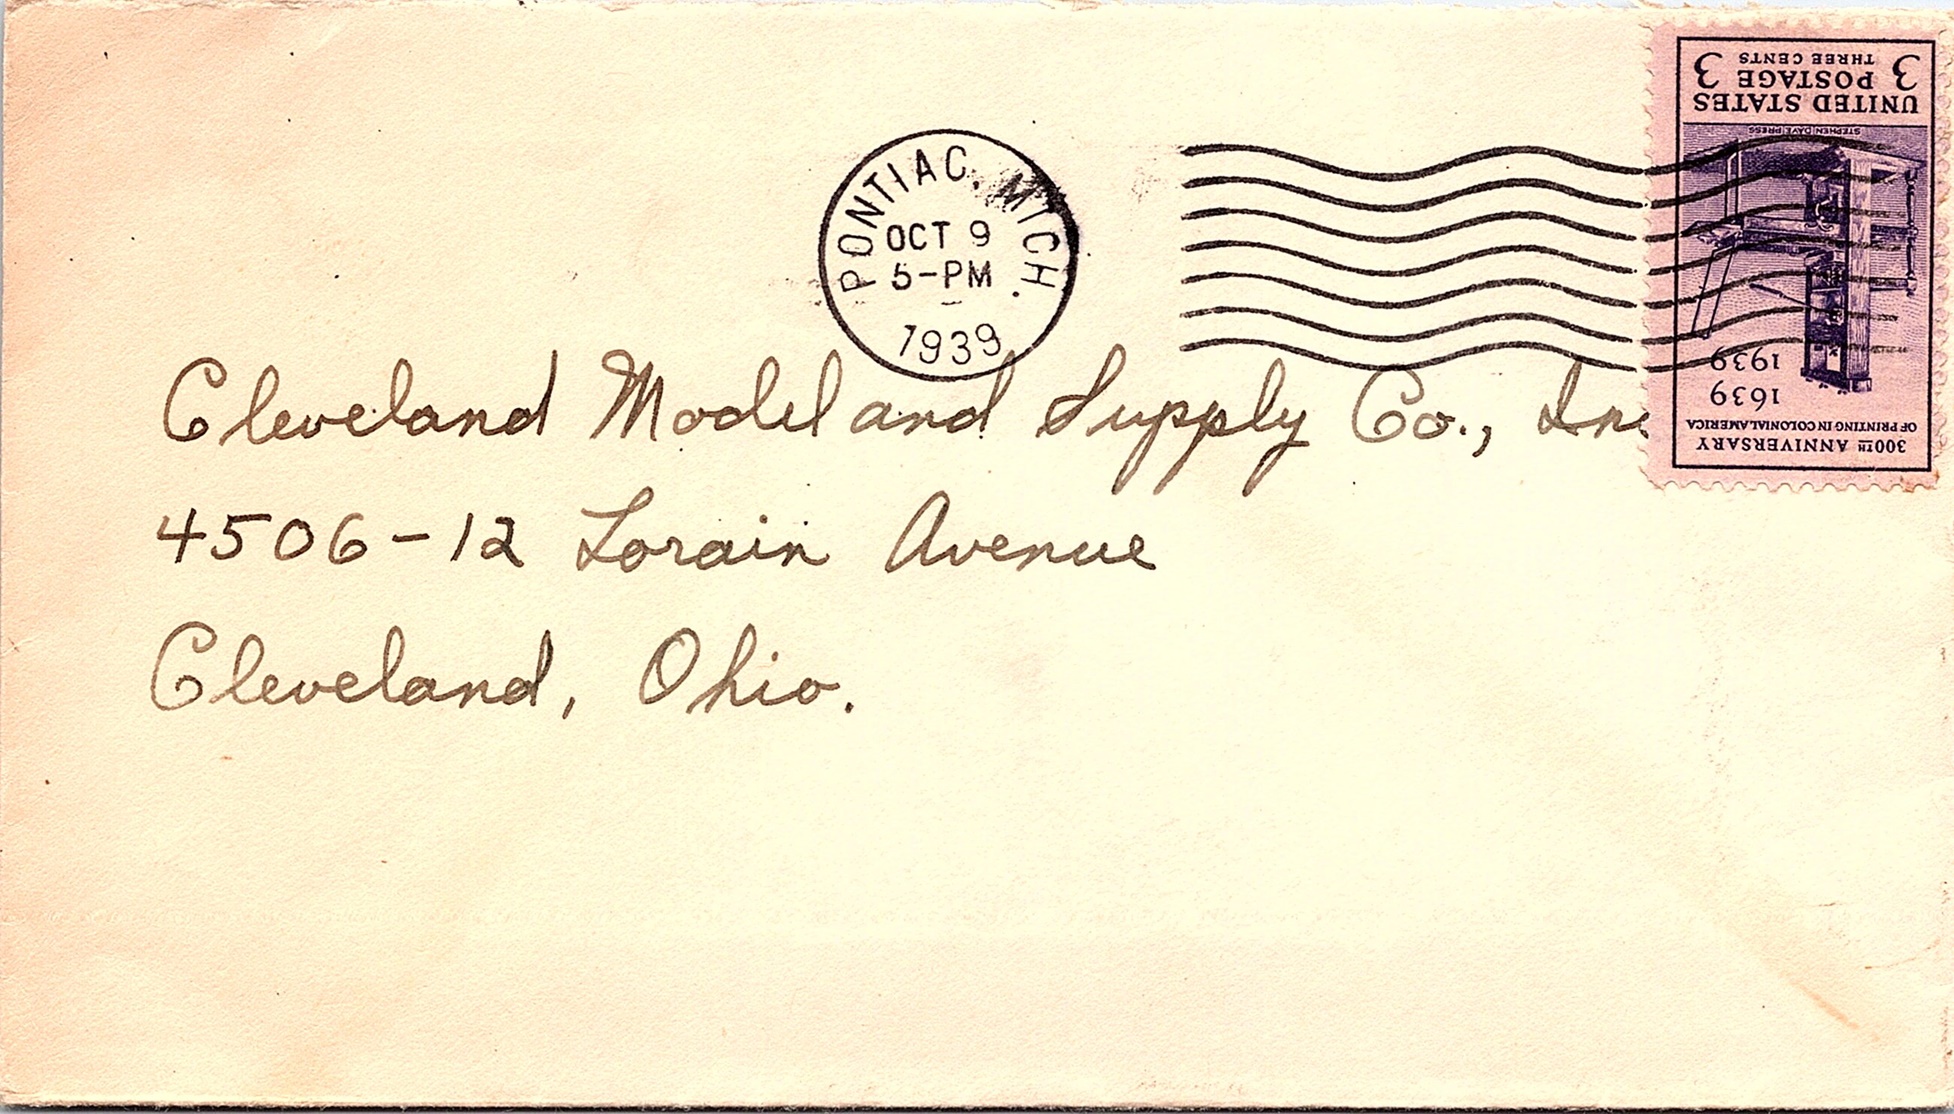 PONTIAC, MICH.
OCT 9
5-PM
1939
UNITED STATES
POSTAGE
3 THREE CENTS 3
STEPHEN DAYE PRESS
1639
1939
300TH ANNIVERSARY
OF PRINTING IN COLONIAL AMERICA
Cleveland Model and Supply Co., Inc
4506-12 Lorain Avenue
Cleveland, Ohio.